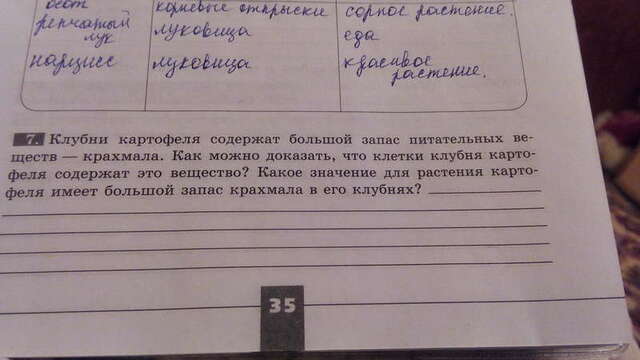 осот корневые отпрыски сорное растение.
репчатый лук луковица еда
нарцисс луковица красивое растение.
7. Клубни картофеля содержат большой запас питательных ве-
ществ — крахмала. Как можно доказать, что клетки клубня карто-
феля содержат это вещество? Какое значение для растения карто-
феля имеет большой запас крахмала в его клубнях?
35